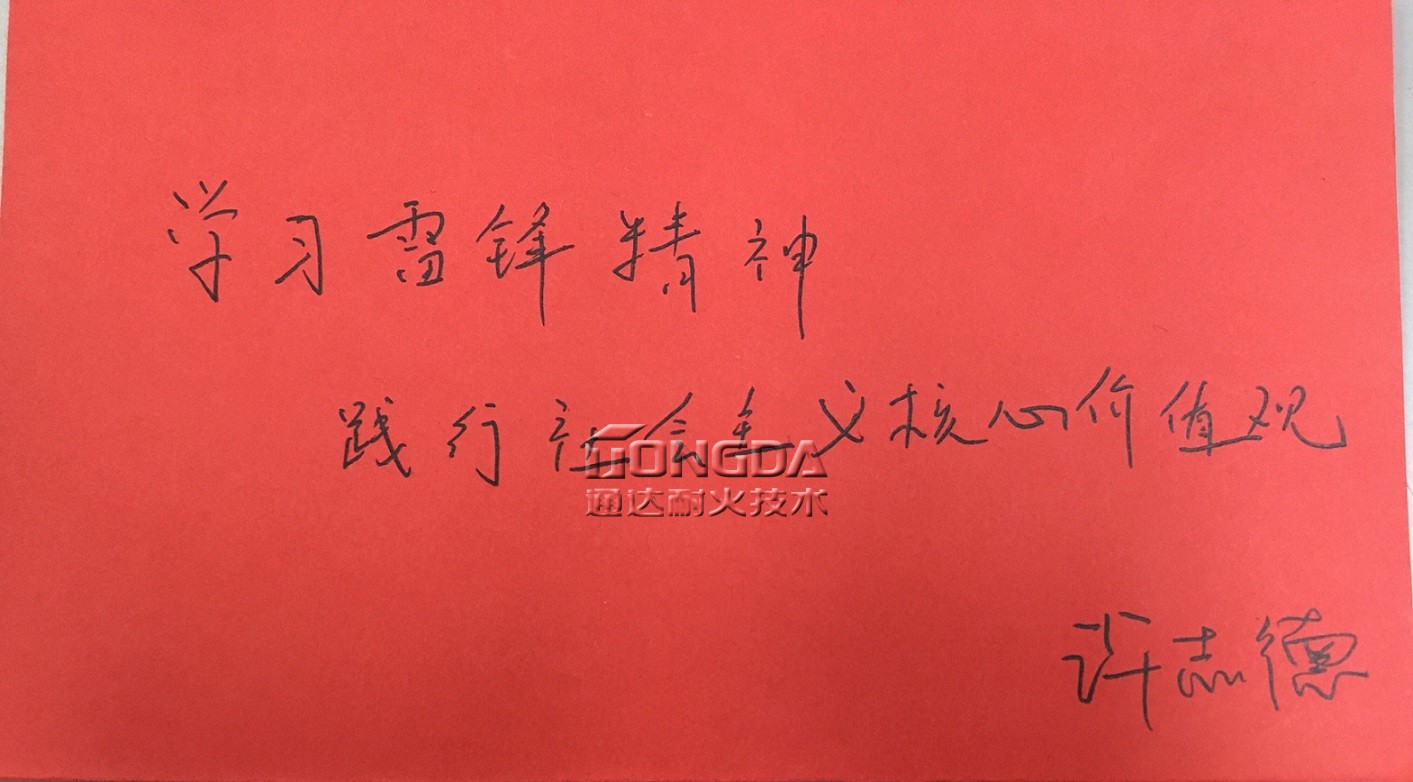 学习雷锋精神
践行社会主义核心价值观
TONGDA
通达耐火技术
许志德